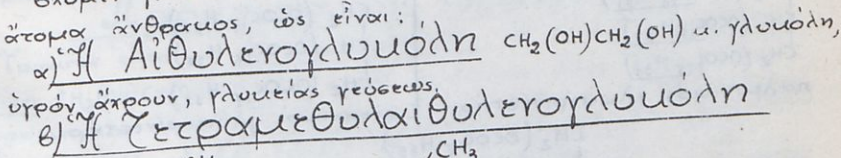 ἄτομα ἄνθρακος, ὡς εἶναι:
α) Ἡ Αἰθυλενογλυκόλη CH₂(OH)CH₂(OH) κ. γλυκόλη,
ὑγρόν, ἄχρουν, γλυκείας γεύσεως.
β) Ἡ Τετραμεθυλαιθυλενογλυκόλη
CH₃